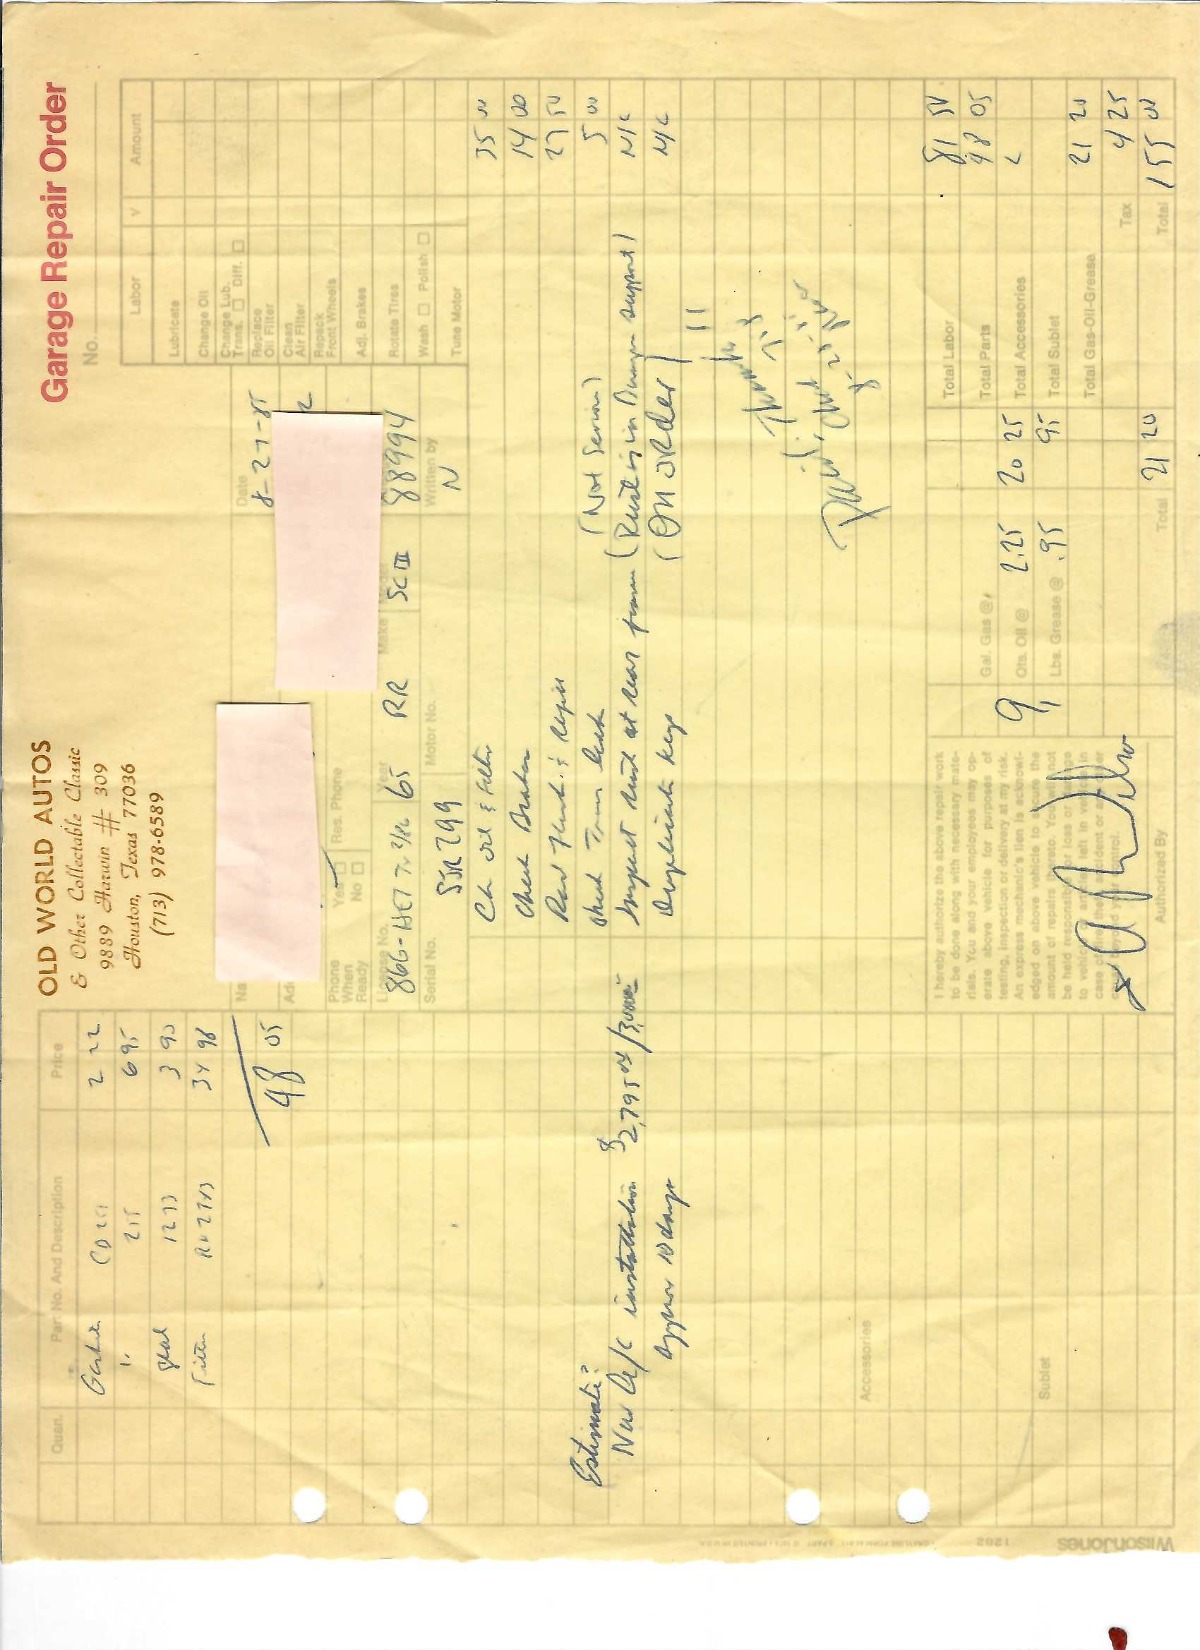 OLD WORLD AUTOS
& Other Collectable Classic
9889 Harwin # 309
Houston, Texas 77036
(713) 978-6589
Garage Repair Order
No.
Quan. Part No. And Description Price
2 22
215 6 95
Seal 3 90
34 98
48 05
Date
8-27-85
Phone When Ready Yes No Res. Phone
License No. Year Make
866-HET 65 RR SC III 88994
Serial No. Motor No. Written by
N
Labor V Amount
Lubricate
Change Oil
Change Lub. Trans. Diff.
Replace Oil Filter
Clean Air Filter
Repack Front Wheels
Adj. Brakes
Rotate Tires
Wash Polish
Tune Motor
Ch oil & Filter 35 00
Check Brakes 14 00
27 50
Check Trans leak (Not Serious) 5 00
Inspect rust at rear N/C
Duplicate keys (ON ORDER) N/C
Thanks
Estimate:
New A/C installation $2,795 00
Approx 10 days
Accessories
Sublet
I hereby authorize the above repair work
to be done along with necessary mate-
rials. You and your employees may op-
erate above vehicle for purposes of
testing, inspection or delivery at my risk.
An express mechanic's lien is acknowl-
edged on above vehicle to secure the
amount of repairs thereto. You will not
be held responsible for loss or
to vehicle left in
case of accident or
control.
X
Authorized By
Gal. Gas @
9 Qts. Oil @ 2.25 20 25
Lbs. Grease @ .95 95
Total 21 20
Total Labor 81 50
Total Parts 48 05
Total Accessories
Total Sublet
Total Gas-Oil-Grease 21 20
Tax 4 25
Total 155 00
WilsonJones